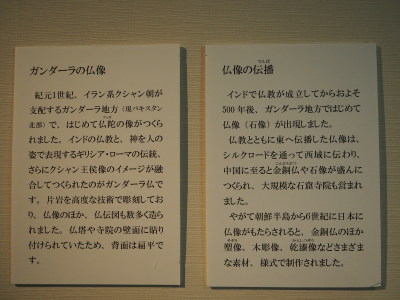 ガンダーラの仏像
紀元1世紀、イラン系クシャン朝が
支配するガンダーラ地方(現パキスタン
北部)で、はじめて仏陀の像がつくら
れました。インドの仏教と、神を人の
姿で表現するギリシア・ローマの伝統、
さらにクシャン王侯像のイメージが融
合してつくられたのがガンダーラ仏で
す。片岩を高度な技術で彫刻してお
り、仏像のほか、仏伝図も数多く造ら
れました。仏塔や寺院の壁面に貼り
付けられていたため、背面は扁平で
す。
仏像の伝播
インドで仏教が成立してからおよそ
500年後、ガンダーラ地方ではじめて
仏像(石像)が出現しました。
仏教とともに東へ伝播した仏像は、
シルクロードを通って西域に伝わり、
中国に至ると金銅仏や石像が盛んに
つくられ、大規模な石窟寺院も営まれ
ました。
やがて朝鮮半島から6世紀に日本に
仏像がもたらされると、金銅仏のほか
塑像、木彫像、乾漆像などさまざま
な素材、様式で制作されました。